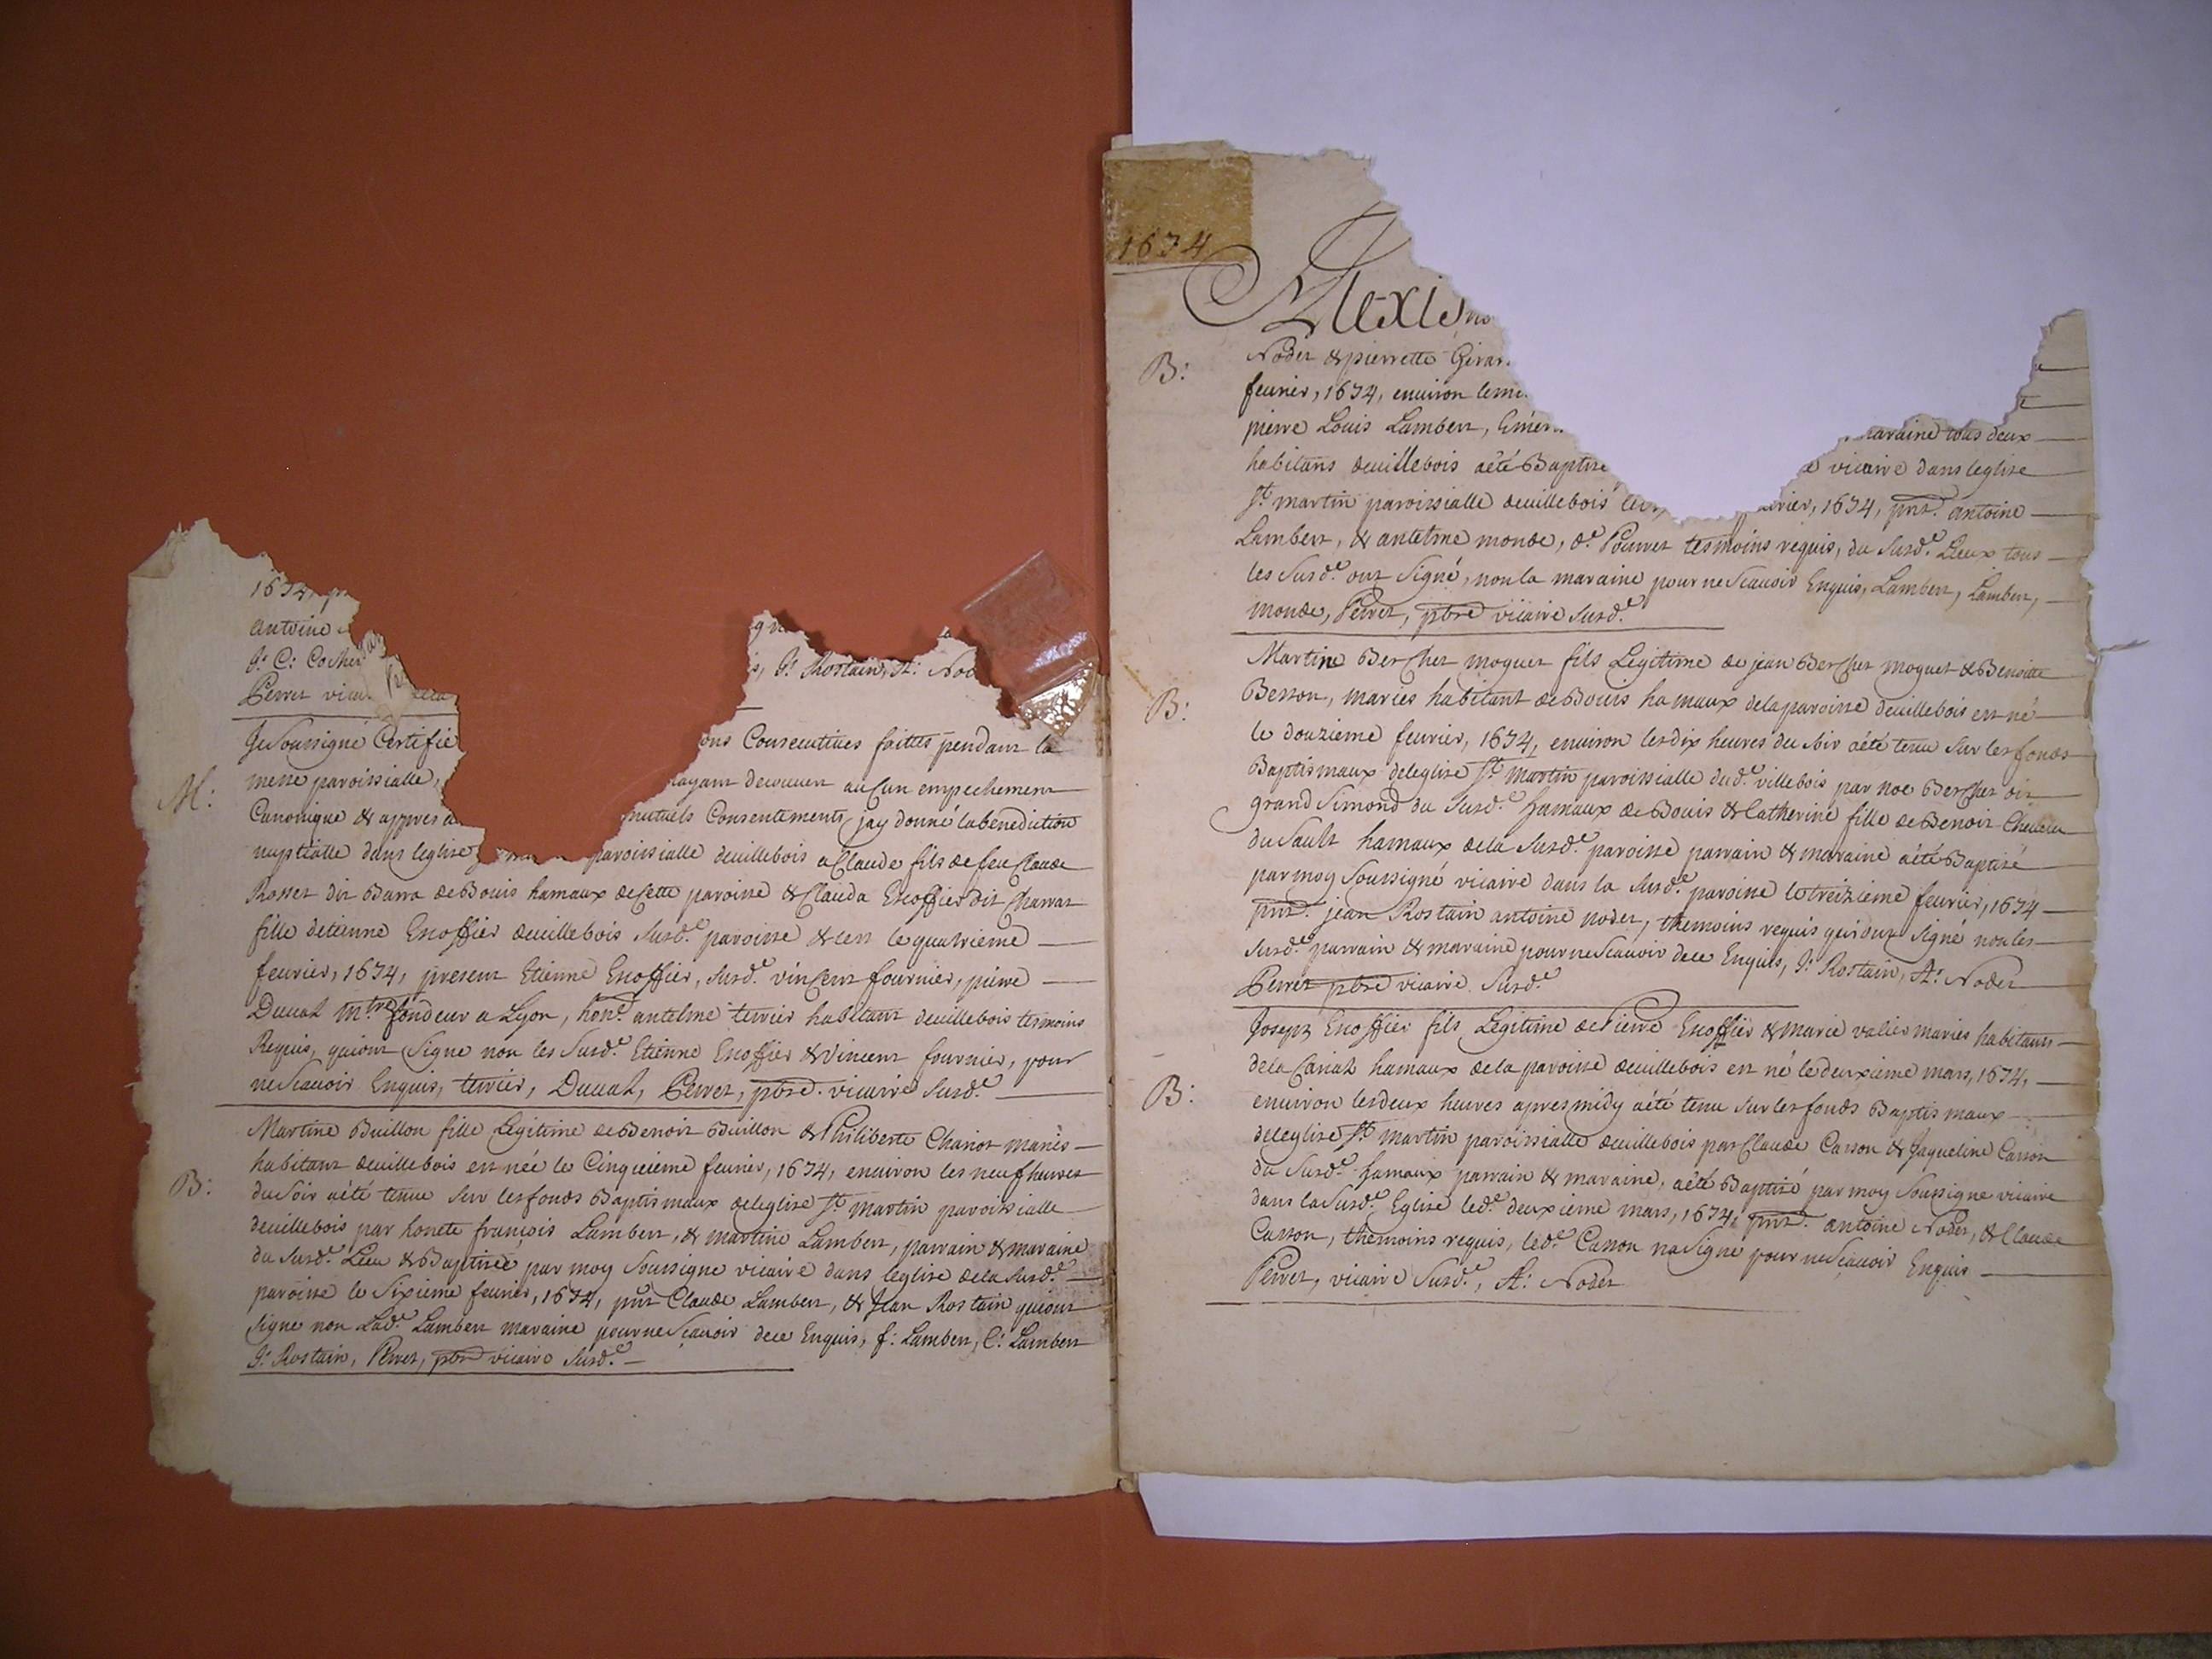 1674, pr
antoine
J: C: Cocher
Perret vicai
gn
s, J: Rostain, A: Nod
Je Soussigné Certifie
ons Consecutives faittes pendant la
M:
messe paroissialle,
nayant decouvert aucun empechement
Canonique & appres a
mutuels Consentements jay donné la benediction
nuptialle dans leglise
paroissialle deuillebois a Claude fils de feu Claude
Rosset dit Barra de Bouis hamaux de Cette paroisse & Clauda Escoffier dit Charrat
fille detienne Escoffier deuillebois susd.e paroisse & cen le quatrieme
feurier, 1674, present Etienne Escoffier, susd.e vincent fournier, pierre
Duual m.tre fondeur a Lyon, hon.e antelme terrier habitant deuillebois tesmoins
Requis, quiont Signe non les Susd.e Etienne Escoffier & Vincent fournier, pour
ne Scauoir Enquis, terrier, Duual, Perret, pbre vicaire susd.e
Martine Buillon fille Legitime de Benoit Buillon & Philiberte Chariot mariés
habitant deuillebois est née le Cinquieme feurier, 1674, enuiron les neuf heures
B:
du soir aété tenue sur les fonds Baptismaux deleglise S.t martin paroissialle
deuillebois par honete françois Lambert, & martine Lambert, parrain & maraine
du susd.e Lieu & Baptisée par moy Soussigne vicaire dans leglise dela susd.e
paroisse le Sixieme feurier, 1674, pnt Claude Lambert, & Jean Rostain quiont
Signe non Lad.e Lambert maraine pour ne Scauoir dece Enquis, f: Lambert, C: Lambert
J: Rostain, Perret, pbre vicaire susd.e
1674
Alexis no
B:
Nodet & pierrette Girar
feurier, 1674, enuiron lemi
pierre Louis Lambert, Emer
maraine tous deux
habitans deuillebois aété Baptise
e vicaire dans leglise
S.t martin paroissialle deuillebois
vrier, 1674, pnt. antoine
Lambert, & antelme monde, d.e Pourret tesmoins requis, du susd.e Lieux tous
les susd.e ont Signé, non la maraine pour ne Scauoir Enquis, Lambert, Lambert,
monde, Perret, pbre vicaire susd.e
Martine Bercher moguet fils Legitime de jean Bercher moguet & Benoitte
B:
Besson, mariés habitant de Bouis hamaux dela paroisse deuillebois est né
le douzieme feurier, 1674, enuiron les dix heures du soir aété tenu sur les fonds
Baptismaux deleglise S.t martin paroissialle dud.e villebois par noe Bercher dit
grand Simond du susd.e hamaux de Bouis & Catherine fille de Benoit
du Sault hamaux dela susd.e paroisse parrain & maraine aété Baptisé
par moy Soussigné vicaire dans la susd.e paroisse le treizieme feurier, 1674
pnt. jean Rostain antoine nodet, themoins requis quiont Signé non les
susd.e parrain & maraine pour ne Scauoir dece Enquis, J: Rostain, A: Nodet
Perret pbre vicaire Susd.e
Joseph Escoffier fils Legitime de Pierre Escoffier & marie valier mariés habitans
dela Cariat hamaux dela paroisse deuillebois est né le deuxieme mars, 1674,
B:
enuiron les deux heures apres midy aété tenu sur les fonds Baptismaux
deleglise S.t martin paroissialle deuillebois par Claude Casson & Jaqueline Casson
du susd.e hamaux parrain & maraine, aété Baptisé par moy Soussigne vicaire
dans la susd.e Eglise led.e deuxieme mars, 1674, pnt. antoine Nodet, & Claude
Casson, themoins requis, led.e Casson na Signe pour ne Scauoir Enquis
Perret, vicaire Susd.e, A: Nodet